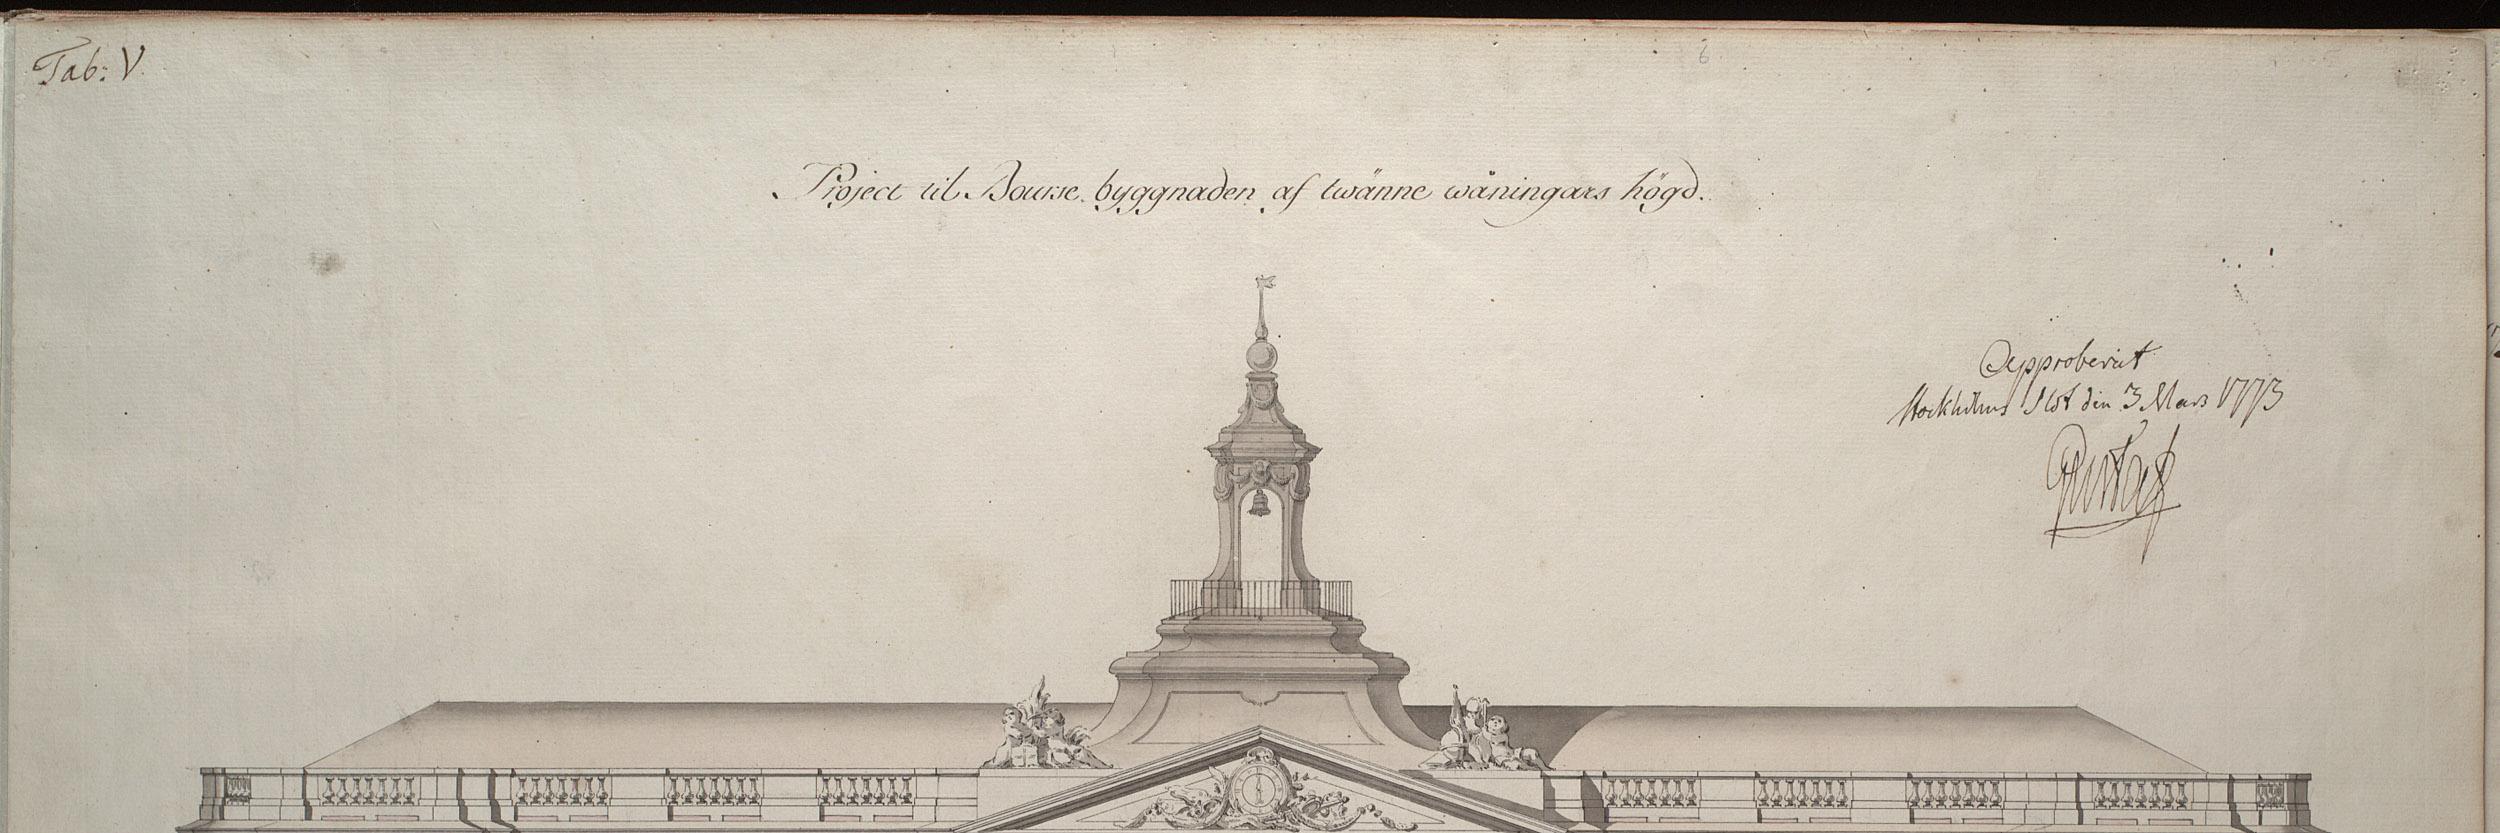 Tab: V
6.
Project til Bourse byggnaden af twänne wåningars högd.
Approberat
Stockholms Slot den 3 Mars 1773
Gustaf